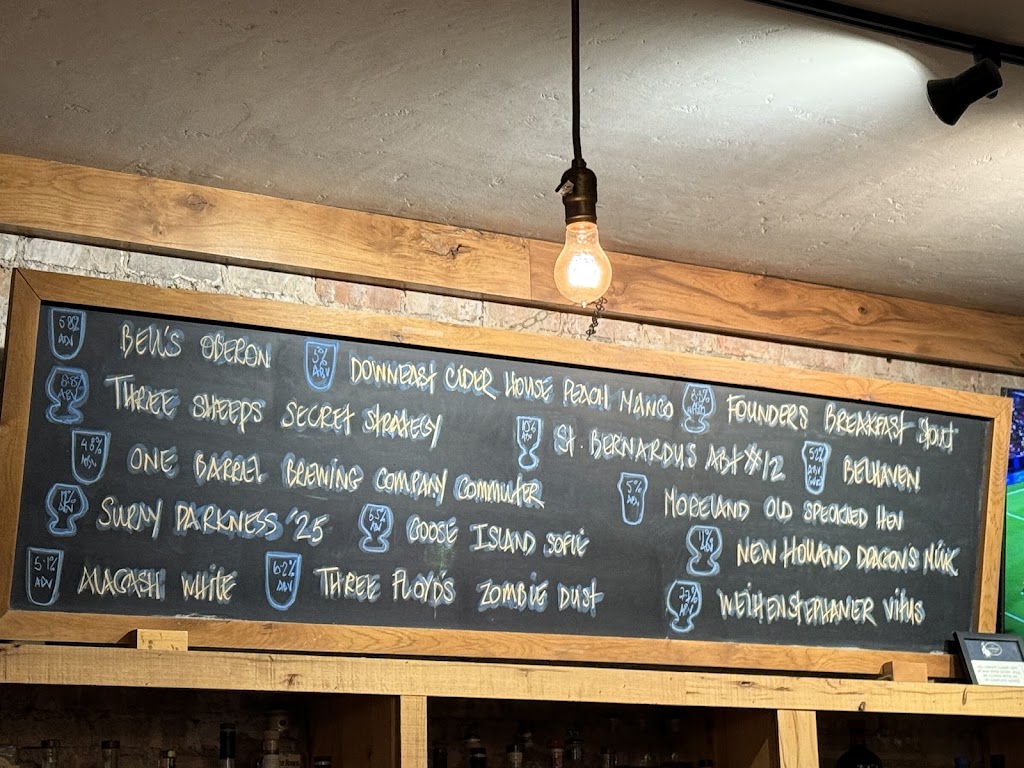 5.8% ABV BELL'S OBERON 5% ABV DOWNEAST CIDER HOUSE PEACH MANGO FOUNDERS BREAKFAST STOUT
THREE SHEEPS SECRET STRATEGY 10% ABV ST. BERNARDUS ABT #12 5.2% ABV BELHAVEN
4.8% ABV ONE BARREL BREWING COMPANY COMMUTER 5% ABV MORELAND OLD SPECKLED HEN
11% ABV SURLY DARKNESS '25 6.5% ABV GOOSE ISLAND SOFIE 11% ABV NEW HOLLAND DRAGON'S MILK
5.1% ABV ALLAGASH WHITE 6.2% ABV THREE FLOYD'S ZOMBIE DUST 7.7% ABV WEIHENSTEPHANER VITUS